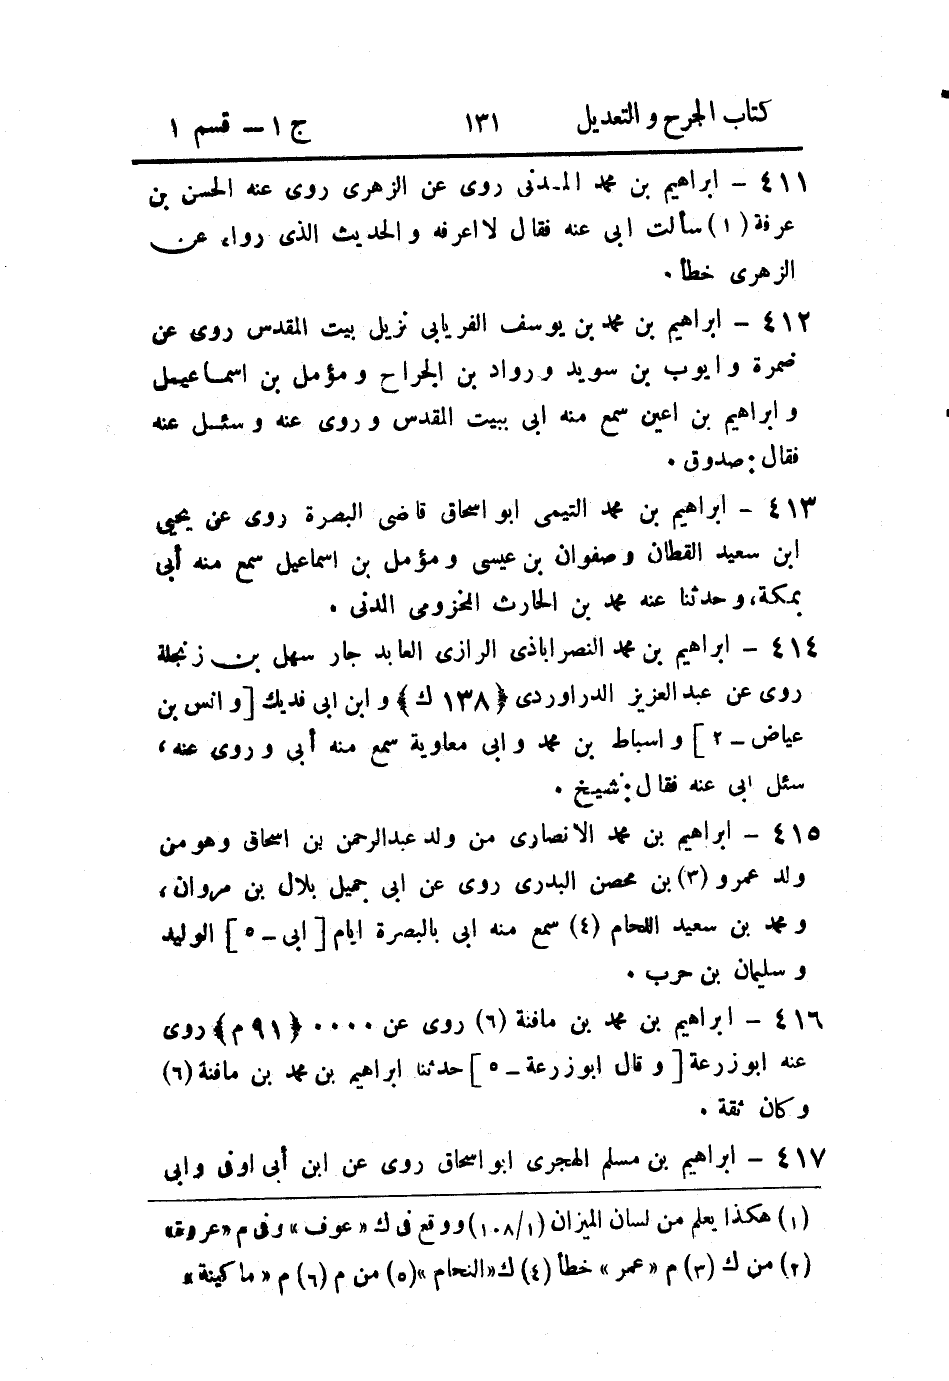 كتاب الجرح والتعديل ١٣١ ج ١ – قسم ١
٤١١ – ابراهيم بن محمد المدنى روى عن الزهرى روى عنه الحسن بن
عرفة (١) سألت ابى عنه فقال لا اعرفه والحديث الذى رواه عن
الزهرى خطأ .
٤١٢ – ابراهيم بن محمد بن يوسف الفريابى نزيل بيت المقدس روى عن
ضمرة وايوب بن سويد ورواد بن الجراح ومؤمل بن اسماعيل
وابراهيم بن اعين سمع منه ابى ببيت المقدس وروى عنه وسئل عنه
فقال: صدوق .
٤١٣ – ابراهيم بن محمد التيمى ابو اسحاق قاضى البصرة روى عن يحيى
ابن سعيد القطان وصفوان بن عيسى ومؤمل بن اسماعيل سمع منه أبى
بمكة، وحدثنا عنه محمد بن الحارث المخزومى المدنى .
٤١٤ – ابراهيم بن محمد النصراباذى الرازى العابد جار سهل بن زنجلة
روى عن عبد العزيز الدراوردى ﴿١٣٨ ك﴾ وابن ابى فديك [وانس بن
عياض – ٢] واسباط بن محمد وابى معاوية سمع منه أبى وروى عنه،
سئل ابى عنه فقال: شيخ .
٤١٥ – ابراهيم بن محمد الانصارى من ولد عبدالرحمن بن اسحاق وهو من
ولد عمرو (٣) بن محصن البدرى روى عن ابى جميل بلال بن مروان،
ومحمد بن سعيد اللحام (٤) سمع منه ابى بالبصرة ايام [ابى – ٥] الوليد
وسليمان بن حرب .
٤١٦ – ابراهيم بن محمد بن مافنة (٦) روى عن .... ﴿٩١ م﴾ روى
عنه ابو زرعة [وقال ابو زرعة – ٥] حدثنا ابراهيم بن محمد بن مافنة (٦)
وكان ثقة .
٤١٧ – ابراهيم بن مسلم الهجرى ابو اسحاق روى عن ابن أبى اوفى وابى
(١) هكذا يعلم من لسان الميزان (١/١٠٨) ووقع فى ك «عوف» وفى م «عروة»
(٢) من ك (٣) م «عمر» خطأ (٤) ك «النحام» (٥) من م (٦) م «ماكينة»